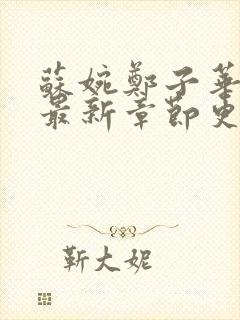 蘇婉鄭子華
最新章節更
靳大妮